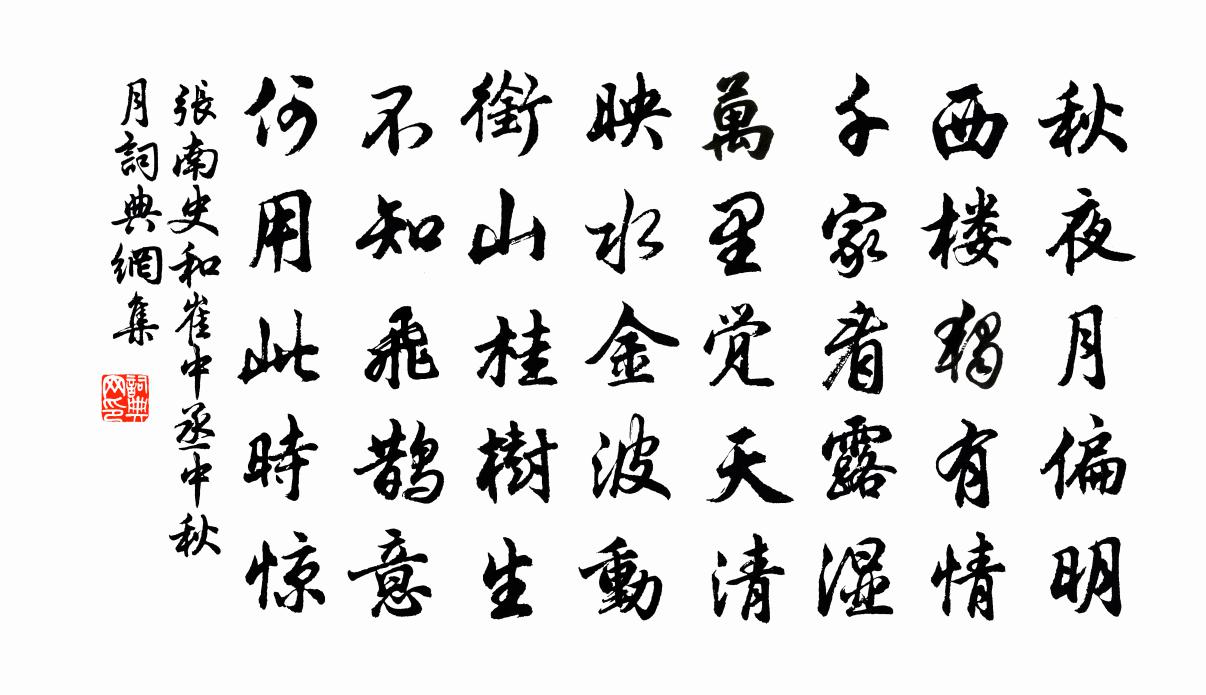 秋夜月偏明
西楼獨有情
千家看露湿
萬里覚天清
映水金波動
銜山桂樹生
不知飛鵲意
何用此時惊
張南史和崔中丞中秋
月詞典網集
詞典网印